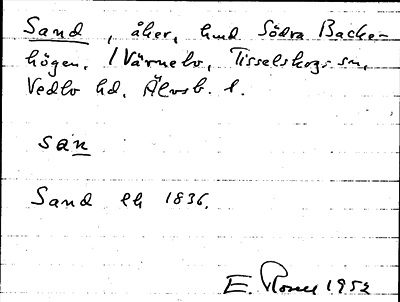 Sand, åker, hmd Södra Backe-
högen. / Värnebo, Tisselskogs sn,
Vedbo hd, Älvsb. l.
san
Sand lh 1836.
E. 1952